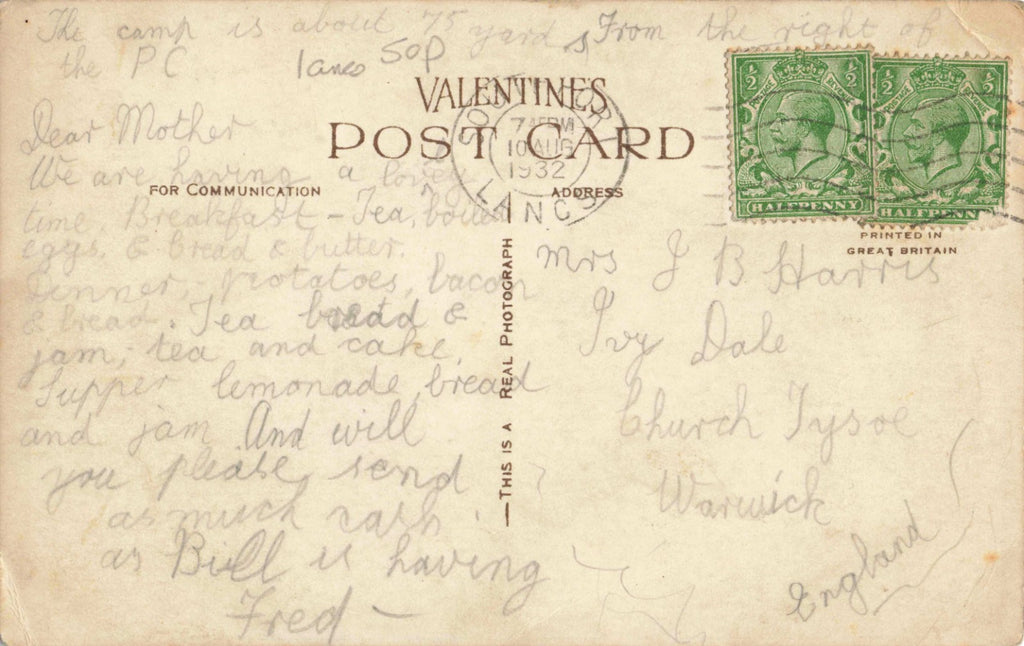 The camp is about 75 yards From the right of
the P C lanes 50p
VALENTINE'S
POST CARD
745PM
10 AUG
1932
LANCS
HALFPENNY
HALFPENN
PRINTED IN
GREAT BRITAIN
FOR COMMUNICATION
ADDRESS
Dear Mother
We are having a lovely
time Breakfast - Tea, boiled
eggs, & bread & butter.
Dinner, - potatoes, bacon
& bread. Tea bread &
jam, tea and cake.
Supper lemonade, bread
and jam And will
you please send
as much cash
as Bill is having
Fred -
THIS IS A REAL PHOTOGRAPH
Mrs J B Harris
Ivy Dale
Church Tysoe
Warwick
England